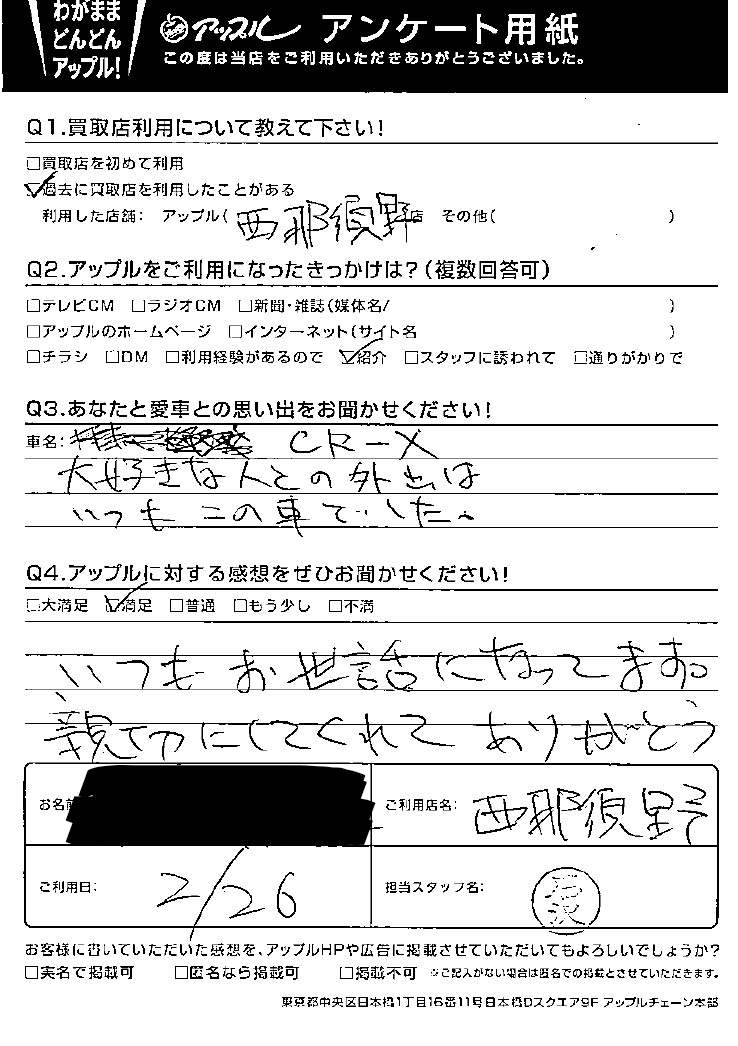 わがまま
どんどん
アップル!
アップル アンケート用紙
この度は当店をご利用いただきありがとうございました。
Q1.買取店利用について教えて下さい!
□買取店を初めて利用
☑過去に買取店を利用したことがある
利用した店舗: アップル(西那須野店 その他( )
Q2.アップルをご利用になったきっかけは?(複数回答可)
□テレビCM □ラジオCM □新聞・雑誌(媒体名/ )
□アップルのホームページ □インターネット(サイト名 )
□チラシ □DM □利用経験があるので ☑紹介 □スタッフに誘われて □通りがかりで
Q3.あなたと愛車との思い出をお聞かせください!
車名: CR-X
大好きな人との外出は
いつもこの車でした。
Q4.アップルに対する感想をぜひお聞かせください!
□大満足 ☑満足 □普通 □もう少し □不満
いつもお世話になってます。
親切にしてくれてありがとう
お名前 ご利用店名: 西那須野
ご利用日: 2/26 担当スタッフ名:
お客様に書いていただいた感想を、アップルHPや広告に掲載させていただいてもよろしいでしょうか?
□実名で掲載可 □匿名なら掲載可 □掲載不可 ※ご記入がない場合は匿名での掲載とさせていただきます。
東京都中央区日本橋1丁目16番11号日本橋Dスクエア9F アップルチェーン本部